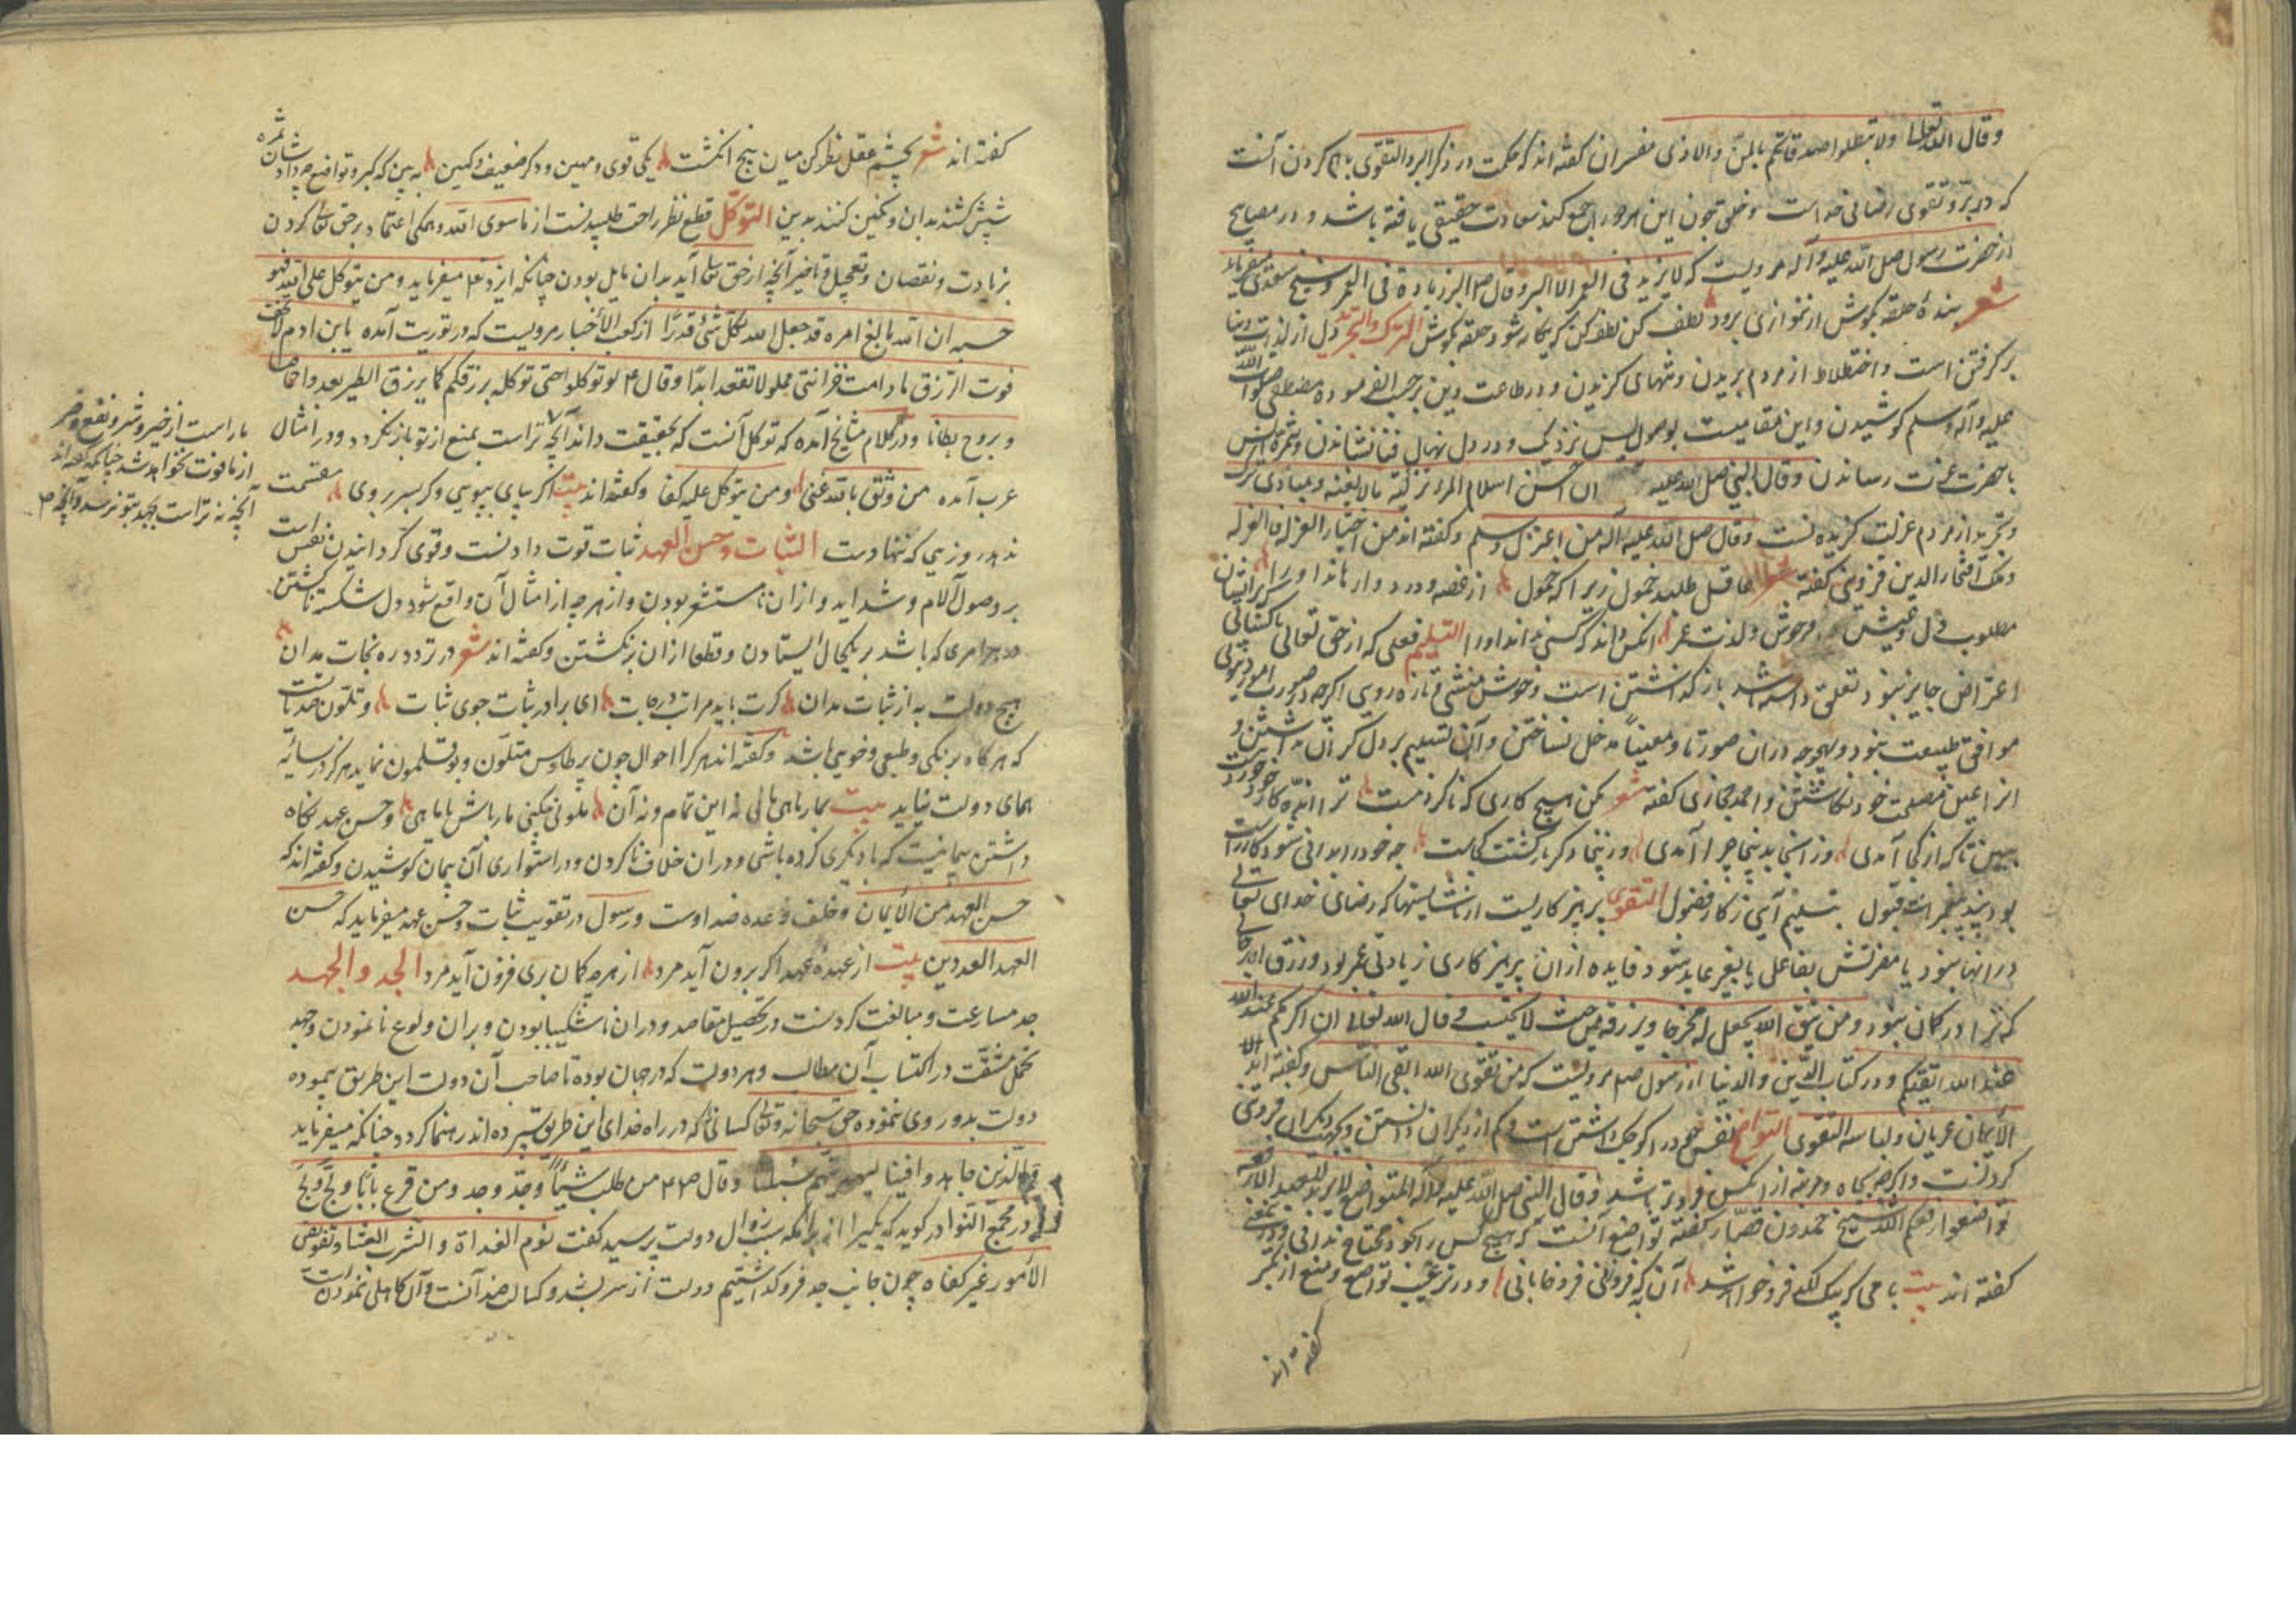 وقال الله تعالی ولا تبطلوا صدقاتکم بالمن والاذی مفسران گفته اند که حکمت در ذکر البر والتقوی باهم کردن آنست
که در بر و تقوی رضای خداست و خلق چون این هر دو را جمع کند سعادت حقیقی یافته باشد و در مصابیح
از حضرت رسول صلی الله علیه وآله مرویست که لا یزید فی العمر الا البر وقال البر زیادة فی العمر وشیخ سعدی میفرماید
شعر بندهٔ حلقه بگوش ار ننوازی برود لطف کن لطف که بیگانه شود حلقه بگوش الترک والتجرید دل از لذات دنیا
برگرفتن است و اختلاط از مردم بریدن و تنهایی گزیدن و در طاعت و دین بر حسب فرموده مصطفی صلی الله
علیه وآله وسلم کوشیدن و این مقامیست بوصول بس نزدیک و در دل نهال فنا نشاندن و ثمره انس
با حضرت عزت رساندن وقال النبی صلی الله علیه ان حسن اسلام المرء ترکه ما لا یعنیه و مبادی ترک
و تجرید از مردم عزلت گزیدنست وقال صلی الله علیه وآله من اعتزل سلم و گفته اند من اختار العزلة فالعز له
و ملک افتخار الدین قزوینی گفته عاقل طلبد خمول زیرا که خمول از غصه و درد وارهاند او را
مطلوب دل و عیش خوش و لذت عمر آنکس داند که کس نداند او را التسلیم فعلی که از حق تعالی
اعتراض جایز نبود تعلق داشته باشد باز گذاشتن است و خوش منشی و تازه رویی اگرچه در صورت امور
موافق طبیعت نبود و بهیچ وجه در آن صورتا و معینا مدخل نساختن و آن تسلیم بر دل گران نداشتن و
آنرا عین مصلحت خود انگاشتن و احمد حجازی گفته شعر مکن هیچ کاری که ناکردنیست
ببین تا که از کجا آمدی وز آنجا بدینجا چرا آمدی وزینجا دگر بازگشتت کجاست چو خود را بدانی شود کار راست
التقوی پرهیز کاریست از ناشایستها که رضای خدای تعالی
در آنها نبود یا مضرتش بفاعل یا بغیر عاید شود فایده از آن پرهیز کاری زیادتی عمر بود و رزق
که ترا در گمان نبود ومن یتق الله یجعل له مخرجا ویرزقه من حیث لا یحتسب وقال الله تعالی ان اکرمکم عند الله
عند الله اتقیکم و در کتاب الدین والدنیا از رسول صلعم مرویست که من تقوی الله اتقی الناس و گفته اند
الایمان عریان ولباسه التقوی التواضع نفس خود را کوچک داشتن است و کم از دیگران دانستن و بجهت دیگران فروتنی
کردنست و اگرچه بجاه و مرتبه از آنکس فروتر باشد وقال النبی صلی الله علیه وآله المتواضع لا یزید العبد الا رفعة
تواضعوا یرفعکم الله شیخ حمدون قصار گفته تواضع آنست که هیچ کس را بخود محتاج ندانی
گفته اند بیت و در ترغیب تواضع و منع از تکبر
گفته اند
گفته اند شعر بچشم عقل نظر کن میان پنج انگشت یکی قوی و مهین و دگر ضعیف و کهین ببین که کبر و تواضع چه داد شان ثمره
شپش کشند بدان و نگین کنند بدین التوکل قطع نظر راحت طلبیدنست از ما سوی الله و همگی اعتماد بر حق تعالی کردن
بزیادت و نقصان و تعجیل و تاخیر آنچه از حق تعالی آید بدان مایل بودن چنانکه ایزد تعالی میفرماید ومن یتوکل علی الله فهو
حسبه ان الله بالغ امره قد جعل الله لکل شئ قدرا از کعب الأخبار مرویست که در توریت آمده یا بن ادم لا تخف
فوت الرزق ما دامت خزائنی مملوة لا تنفد ابدا وقال ع لو توکلوا حق توکله یرزقکم کما یرزق الطیر یغدوا خماصا
و یروح بطانا و در کلام مشایخ آمده که توکل آنست که بحقیقت داند آنچه تراست بمنع از تو باز نگردد و در امثال
عرب آمده من وثق بالله غنی ومن یتوکل علیه کفا و گفته اند بیت اگر بپای بپویی و گر بسر بروی مقسمت
ندهد روزیی که ننهادست الثبات وحسن العهد ثبات قوت دادنست و قوی گردانیدن نفس است
بر وصول آلام و شداید و از آن نا مستشعر بودن و از هرچه از امثال آن واقع شود دل شکسته نا گشتن
در هر امری که باشد بر یکحال ایستادن و قطعا از آن بر نگشتن و گفته اند شعر در تردد ره نجات مدان
هیچ دولت به از ثبات مدان گرت باید مراتب درجات ای برادر ثبات جوی ثبات و تلون ضد ثباتست
که هر گاه برنگی و طبعی و خویی باشد و گفته اند هر کرا احوال چون پر طاوس متلون و بوقلمون نماید هرگز در سایه
همای دولت نیاید بیت بمار ماهی مانی نه این تمام و نه آن ملونی مکنی مار باش یا ماهی و حسن عهد نگاه
داشتن پیمانیست که با دیگری کرده باشی و در آن خلاف نا کردن و در استواری آن پیمان کوشیدن و گفته اند که
حسن العهد من الأیمان و خلف وعده ضد اوست و رسول در تقویت ثبات و حسن عهد میفرماید که حسن
العهد العددین بیت از عهدهٔ عهد اگر برون آید مرد از هرچه گمان بری فزون آید مرد الجد والجهد
جد مسارعت و مبالغت کردنست در تحصیل مقاصد و در آن نا شکیبا بودن و بر آن ولوع نا نمودن و جهد
تحمل مشقت در اکتساب آن مطالب و هر دولت که در جهان بوده تا صاحب آن دولت این طریق نپیموده
دولت بدو روی ننموده حق سبحانه و تعالی کسانی را که در راه خدای این طریق سپرده اند رهنما گردد چنانکه میفرماید
والذین جاهدوا فینا لنهدینهم سبلنا وقال صلعم من طلب شیئا وجد وجد ومن قرع بابا ولج ولج
در مجمع النوادر گوید که یکیرا از برامکه سبب زوال دولت پرسید گفت نوم الغداة والشرب العشا وتفویض
الأمور غیر کفاه چون جانب جد فرو گذاشتیم دولت از سر بشد و کسل ضد آنست و آن کاهلی نمودن است
ما راست از خیر و شر و نفع و ضر
از ما فوت نخواهد شد چنانکه گفته اند
آنچه نه تراست بجهد بتو نرسد و آنچه